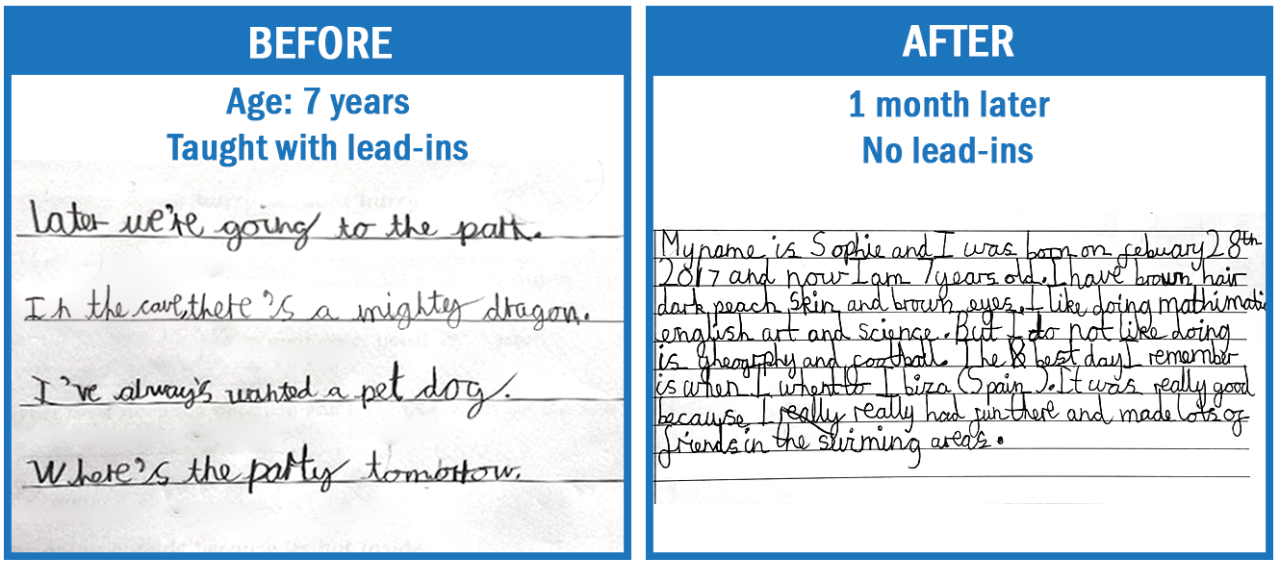 BEFORE
Age: 7 years
Taught with lead-ins
Later we're going to the park.
In the cave, there's a mighty dragon.
I've always wanted a pet dog.
Where's the party tomorrow.
AFTER
1 month later
No lead-ins
My name is Sophie and I was born on febuary 28th
2017 and now I am 7 years old. I have brown hair
dark peach skin and brown eyes. I like doing mathimatic
english art and science. But I do not like doing
is gheogrphy and football. The best day I remember
is when I whent to Ibiza (Spain). It was really good
because I really really had fun there and made lots of
friends in the swiming areas.